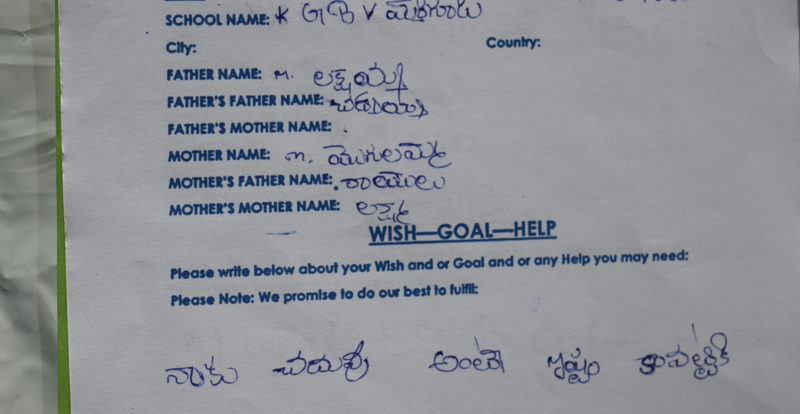 SCHOOL NAME: K G B V
City: Country:
FATHER NAME: M. లక్ష్మయ్య
FATHER'S FATHER NAME:
FATHER'S MOTHER NAME:
MOTHER NAME: M. మొగులమ్మ
MOTHER'S FATHER NAME: రాములు
MOTHER'S MOTHER NAME:
WISH—GOAL—HELP
Please write below about your Wish and or Goal and or any Help you may need:
Please Note: We promise to do our best to fulfil:
నాకు చదువు అంటే ఇష్టం కాబట్టి